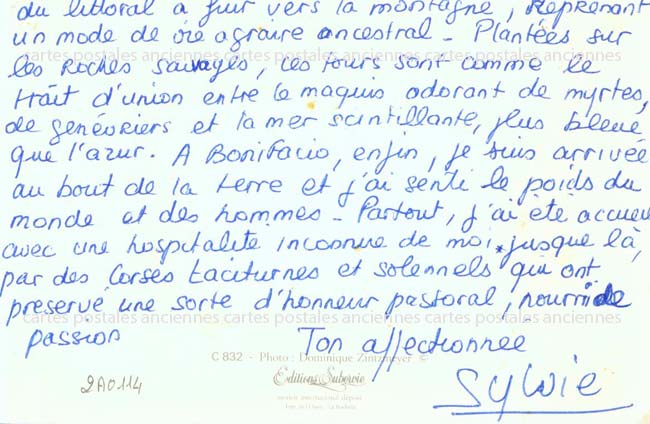 du littoral à fuir vers la montagne, reprenant
un mode de vie agraire ancestral - Plantées sur
les roches sauvages, ces tours sont comme le
trait d'union entre le maquis odorant de myrtes,
de genévriers et la mer scintillante, plus bleue
que l'azur. A Bonifacio, enfin, je suis arrivée
au bout de la terre et j'ai senti le poids du
monde et des hommes - Partout, j'ai été accueil
avec une hospitalité inconnue de moi jusque là,
par des Corses taciturnes et solennels qui ont
préservé une sorte d'honneur pastoral, nourri de
passion
Ton affectionnée
Sylvie
C 832 - Photo : Dominique Zintzmeyer ©
Editions Subervie
2A0114
cartes postales anciennes cartes postales anciennes cartes postales anciennes
cartes postales anciennes cartes postales anciennes cartes postales anciennes